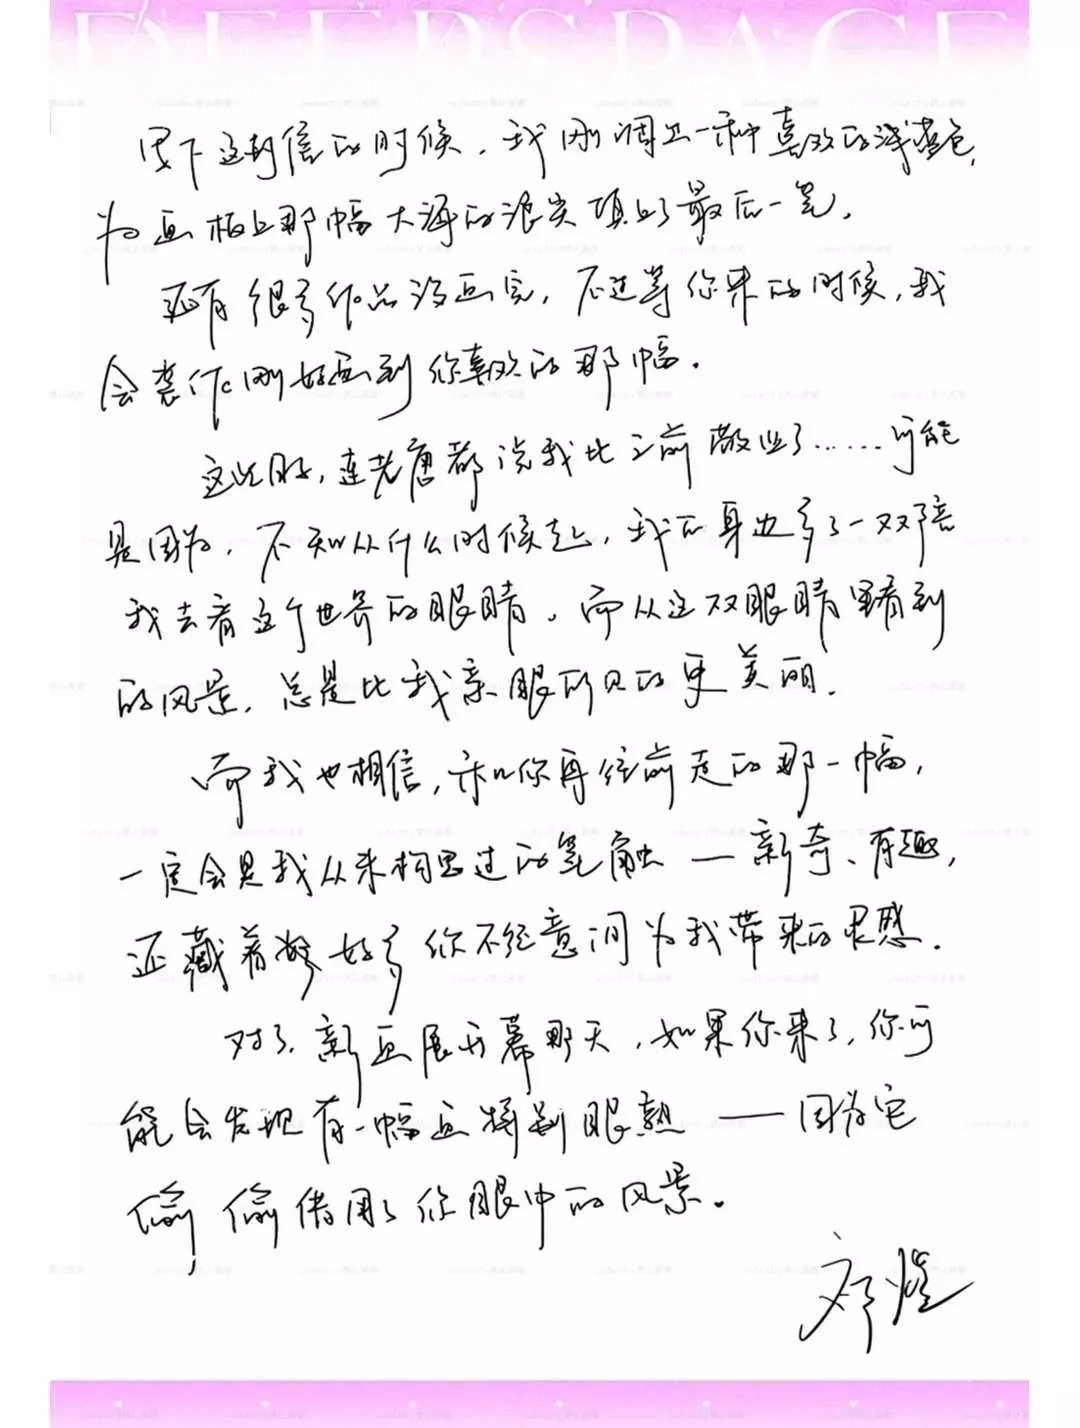 DEEPSPACE
写下这封信的时候，我刚调出一种喜欢的浅蓝色，
为画板上那幅大海的浪尖填上了最后一笔。
还有很多作品没画完，不过等你来的时候，我
会装作刚好画到你喜欢的那幅。
这些日子，连老唐都说我比之前敬业了……可能
是因为，不知从什么时候起，我的身边多了一双陪
我去看这个世界的眼睛。而从这双眼睛里看到
的风景，总是比我亲眼所见的更美丽。
而我也相信，和你再往前走的那一幅，
一定会是我从未构思过的笔触——新奇、有趣，
还藏着好多你不经意间为我带来的灵感。
对了，新画展开幕那天，如果你来了，你可
能会发现有一幅画特别眼熟——因为它
偷偷借用了你眼中的风景。
祁煜